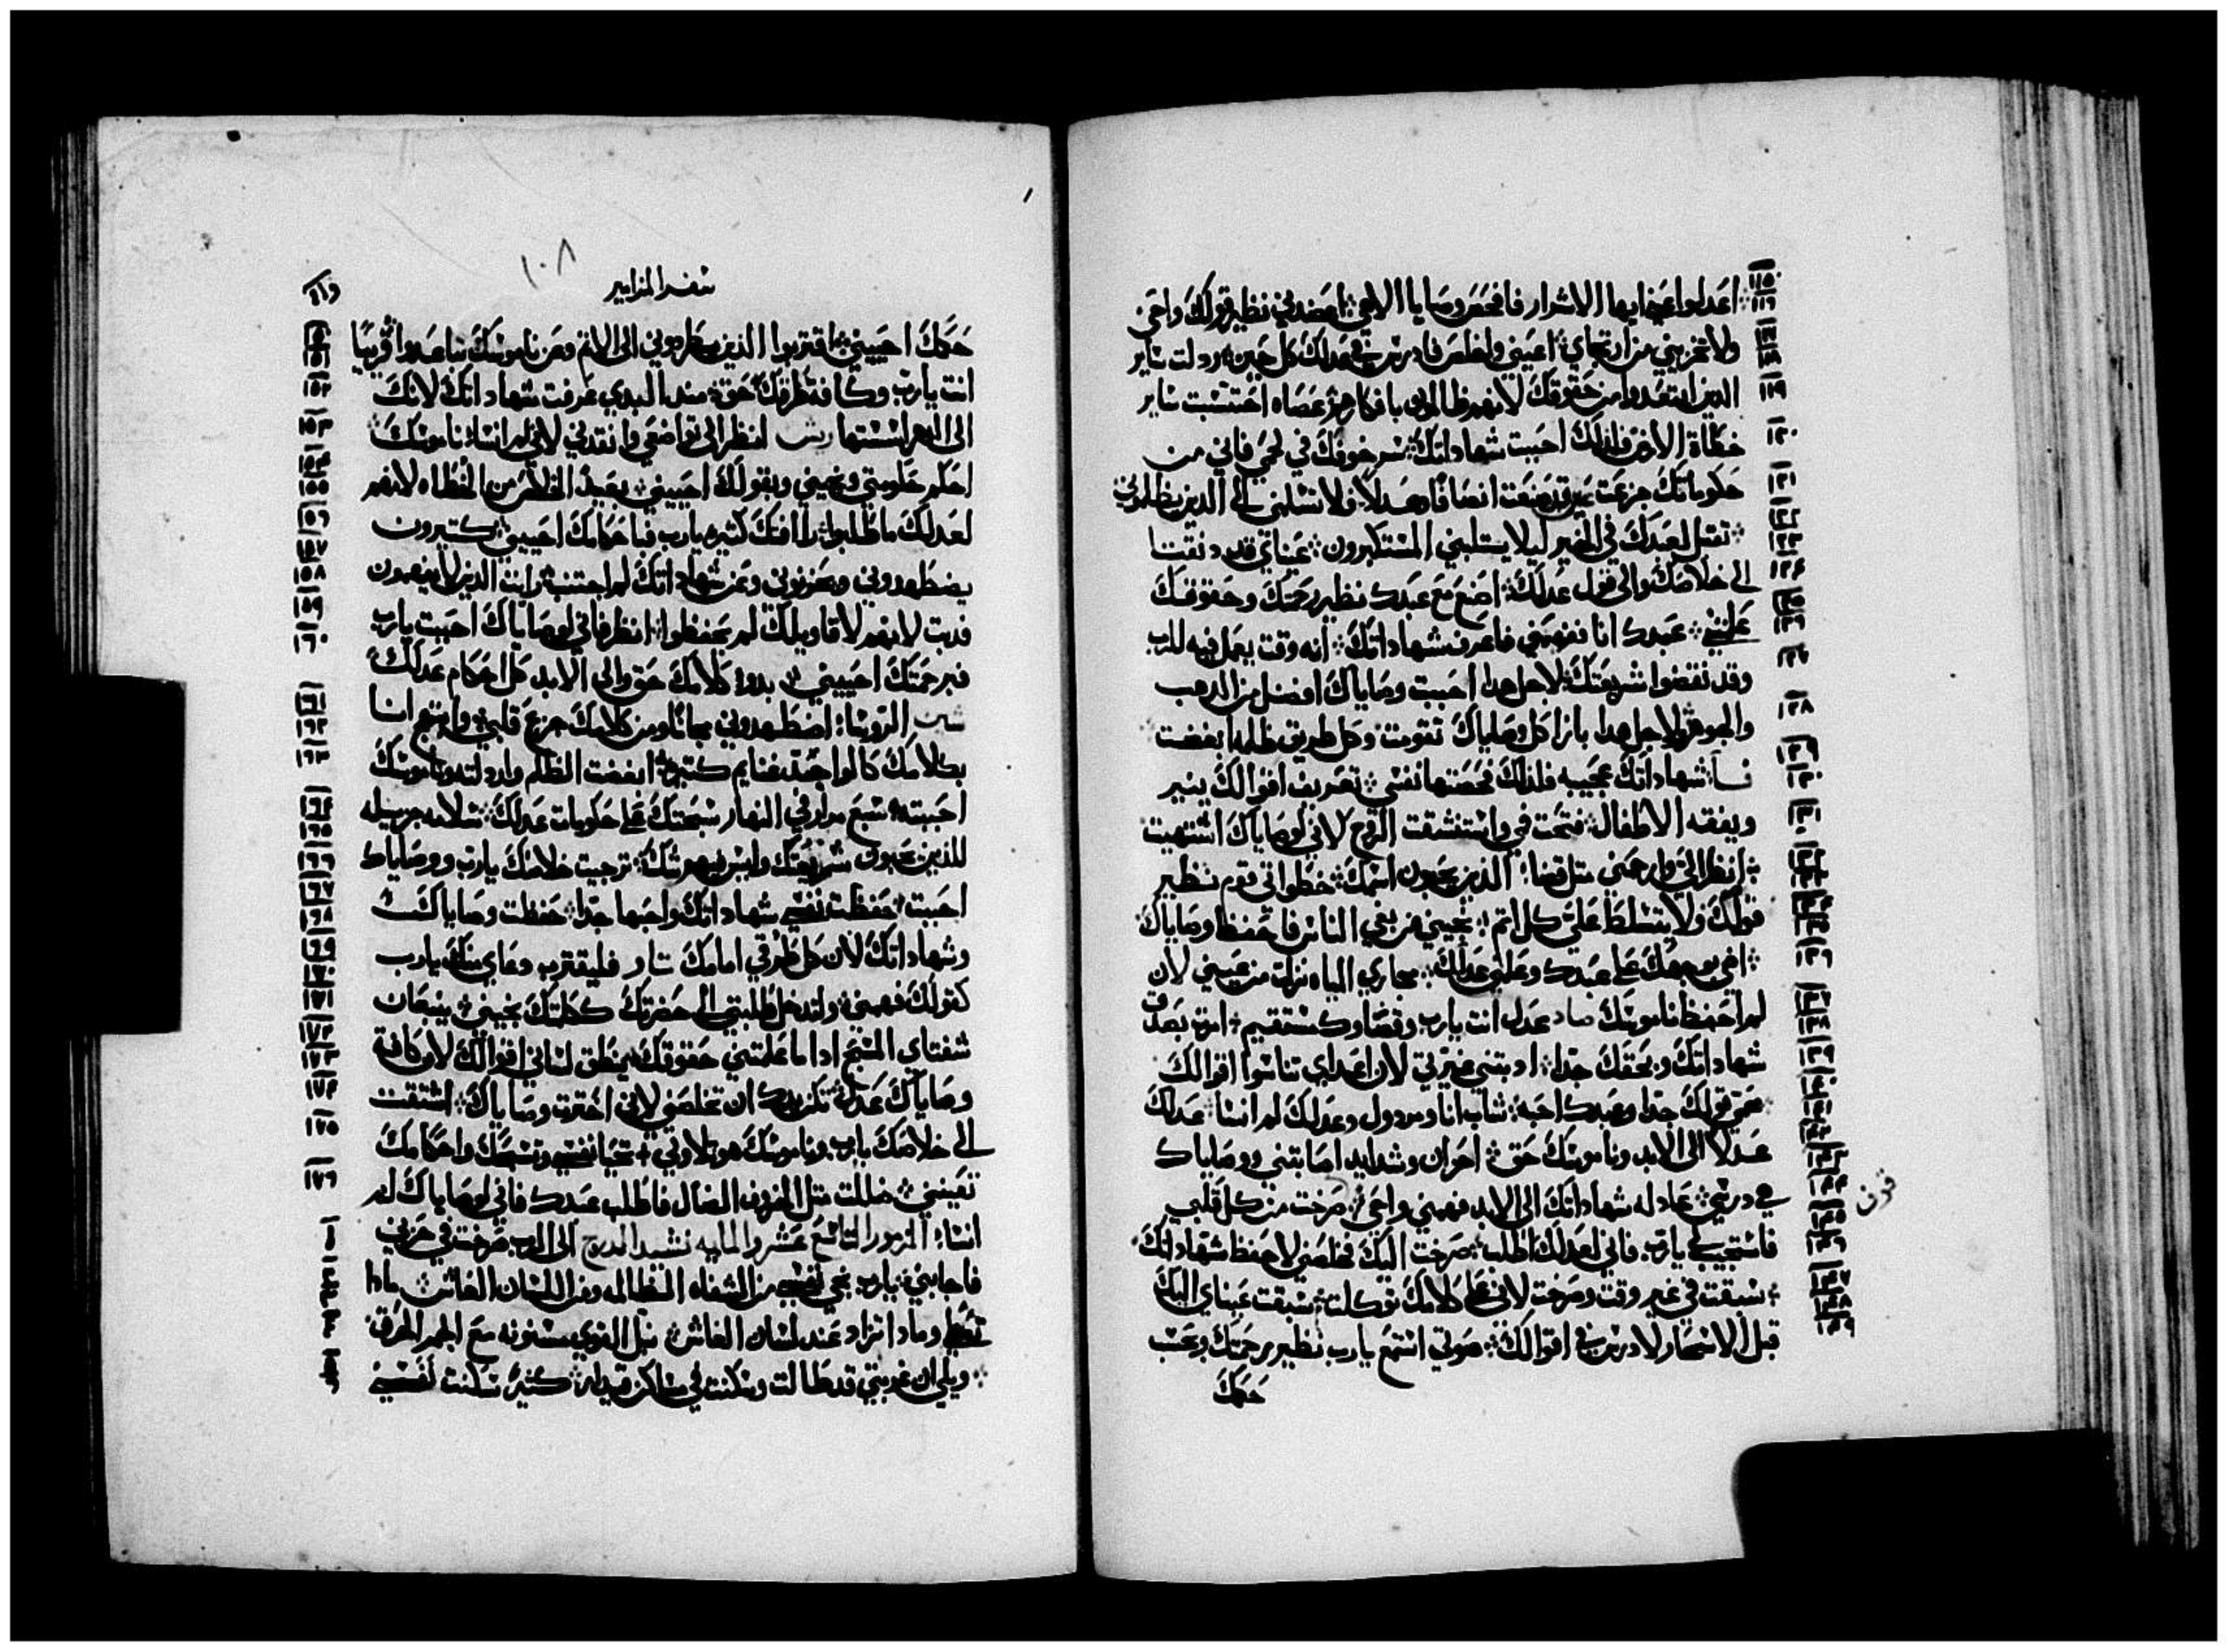 اعدلوا عني ايها الاشرار فافحص وصايا الاهي اعضدني نظير قولك واحيي
ولا تخزيني من ارتجاي اعيني واخلص فادرس في عدلك كل حين ردلت ساير
الذين ابتعدوا من حقوقك لانهم ظالمون بافكارهم عصاه احتسبت ساير
خطاة الارض فلذلك احببت شهاداتك سمر خوفك في لحمي فاني من
حكوماتك جزعت عين قد صنعت انصافا وعدلا فلا تسلمني الى الذين يظلموني
تقبل لعبدك في الخير ليلا يستلبني المستكبرون عيناي قد دنفتا
الى خلاصك والى قول عدلك اصنع مع عبدك نظير رحمتك وحقوقك
علمني عبدك انا ففهمني فاعرف شهاداتك انه وقت يعمل فيه للرب
وقد نقضوا شريعتك لاجل هدا احببت وصاياك افضل من الدهب
والجوهر لاجل هدا بازا كل وصاياك تقومت وكل طريق ظلم ابغضت
شهاداتك عجيبه فلذلك فحصتها نفسي تعريف اقوالك ينير
ويفقه الاطفال فتحت فمي واستنشقت الروح لاني لوصاياك اشتهيت
انظر الي وارحمني مثل قضا الذين يحبون اسمك خطواتي قوم نظير
قولك ولا يتسلط علي كل اثم نجيني من بغي الناس فاحفظ وصاياك
اضي بوجهك على عبدك وعلمني عدلك مجاري المياه نزلت من عيني لان
لم احفظ ناموسك صاد عدل انت يارب وقضاوك مستقيم امرت بصدق
شهاداتك وبحقك جدا ادبتني غيرتي لان اعداي تناسوا اقوالك
محمي قولك جدا وعبدك احبه شاب انا ومردول وعدلك لم انسا عدلك
عدلا الى الابد وناموسك حق احزان وشدايد اصابتني ووصاياك
هي درسي عادله شهاداتك الى الابد فهمني واحيي صرخت من كل قلبي
فاستجيب لي يارب فاني لعدلك اطلب صرخت اليك فخلصني لاحفظ شهاداتك
سبقت في غير وقت وصرخت لاني على كلامك توكلت سبقت عيناي اليك
قبل الاسحار لادرس في اقوالك صوتي استمع يارب نظير رحمتك وبحسب
حكمك
سفر المزامير
١٠٨
حكمك احييني اقتربوا الذين يطردوني الى الاثم وعن ناموسك تباعدوا قريبا
انت يارب وكافة طرقك حق مند البدي عرفت شهاداتك لانك
الى الدهر اسستها ريش انظر الى تواضعي وانقدني لاني لم انسا ناموسك
احكم حكومتي ونجيني وبقولك احييني بعيد الخلاص من الخطاه لانهم
لعدلك ما طلبوا رافاتك كثيره يارب فباحكامك احييني كتيرون
يضطهدوني ويحزنوني وعن شهاداتك لم اجتنب رايت الذين لا يفهمون
فدبت لانهم لاقاويلك لم يحفظوا انظر فاني لوصاياك احببت يارب
فبرحمتك احييني بدو كلامك حق والى الابد كل احكام عدلك
شين الروسا اضطهدوني مجانا ومن كلامك جزع قلبي وابتهج انا
بكلامك كالواجد غنايم كتيره ابغضت الظلم واردلته وناموسك
احببته سبع مرار في النهار سبحتك على حكومات عدلك سلامه جزيله
للذين يحبون شريعتك وليس فيهم شك ترجيت خلاصك يارب ووصاياك
احببت حفظت نفسي شهاداتك واحبها جدا حفظت وصاياك
وشهاداتك لان كل طرقي امامك تاو فليقترب دعاي منك يارب
كقولك فهمني ولتدخل طلبتي الى حضرتك ككلمتك نجيني ينبعان
شفتاي السبح ادا ما علمتني حقوقك ينطق لساني اقوالك لان كافة
وصاياك عدل تكن يدك ان تخلصني لاني اخترت وصاياك اشتقت
الى خلاصك يارب وناموسك هو تلاوتي تحيا نفسي وتسبحك واحكامك
تعينني ضللت مثل الخروف الضال فاطلب عبدك فاني لوصاياك لم
انسا المزمور التاسع عشر والمايه نشيد الدرج الى الرب صرخت في حزني
فاجابني يارب نجي نفسي من الشفاه الظالمه ومن اللسان الغاش مادا
تعطا ومادا تزاد عند لسان الغاش نبل القوي مسنونه مع الجمر المحرق
ويلي ان غربتي قد طالت وسكنت في مساكن قيدار كثيرا سكنت نفسي